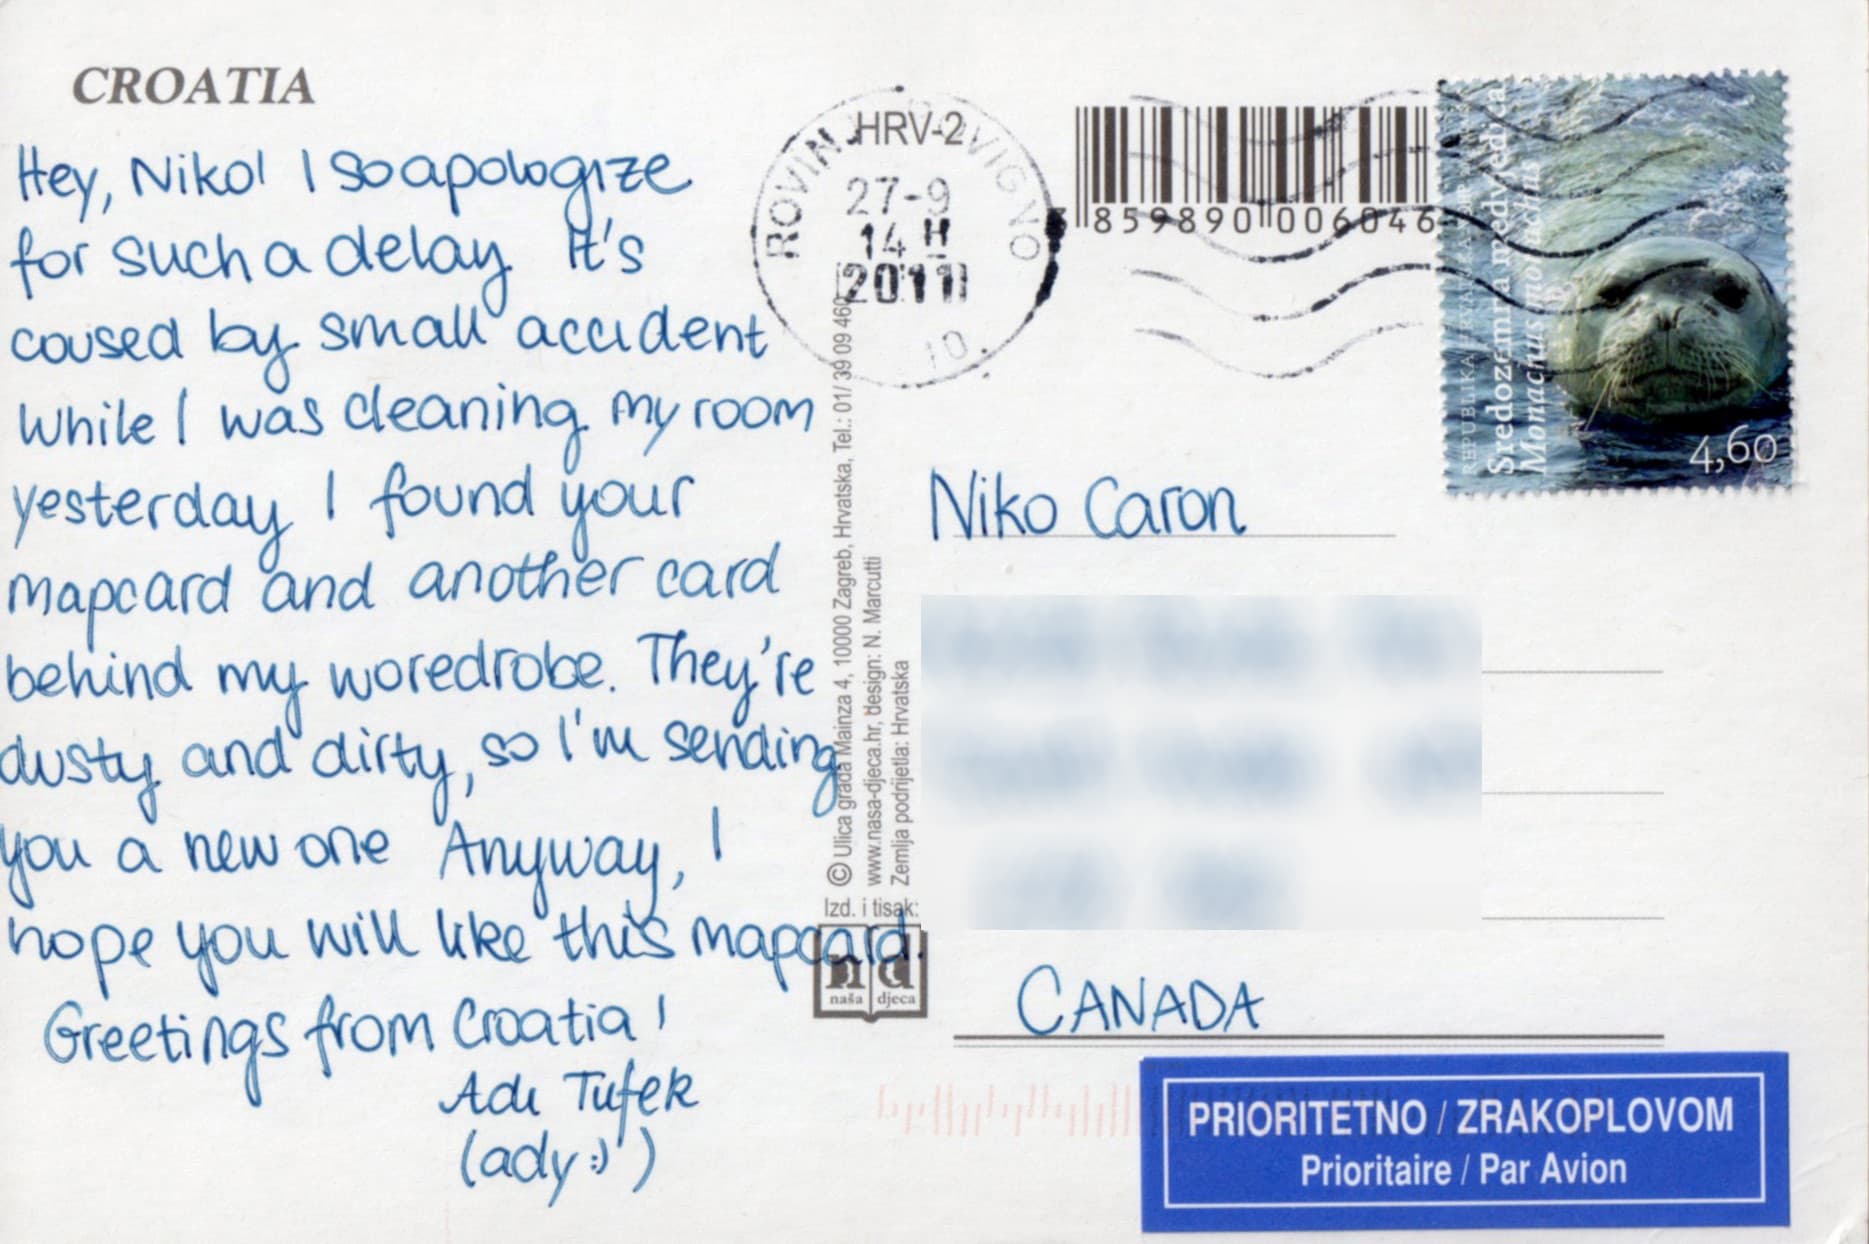 CROATIA
Hey, Niko! I so apologize
for such a delay. It's
caused by small accident
while I was cleaning my room
yesterday I found your
mapcard and another card
behind my woredrobe. They're
dusty and dirty, so I'm sending
you a new one Anyway, I
hope you will like this mapcard.
Greetings from Croatia!
Adi Tufek
(ady :))
ROVINJ ROVIGNO
HRV-2
27-9
14 H
2011
3 859890 006046
REPUBLIKA HRVATSKA
Sredozemna medvjedica
Monachus monachus
4,60
© Ulica grada Mainza 4, 10000 Zagreb, Hrvatska, Tel.: 01/ 39 09 460
www.nasa-djeca.hr, design: N. Marcutti
Zemlja podrijetla: Hrvatska
Izd. i tisak:
nd
naša djeca
Niko Caron
CANADA
PRIORITETNO / ZRAKOPLOVOM
Prioritaire / Par Avion